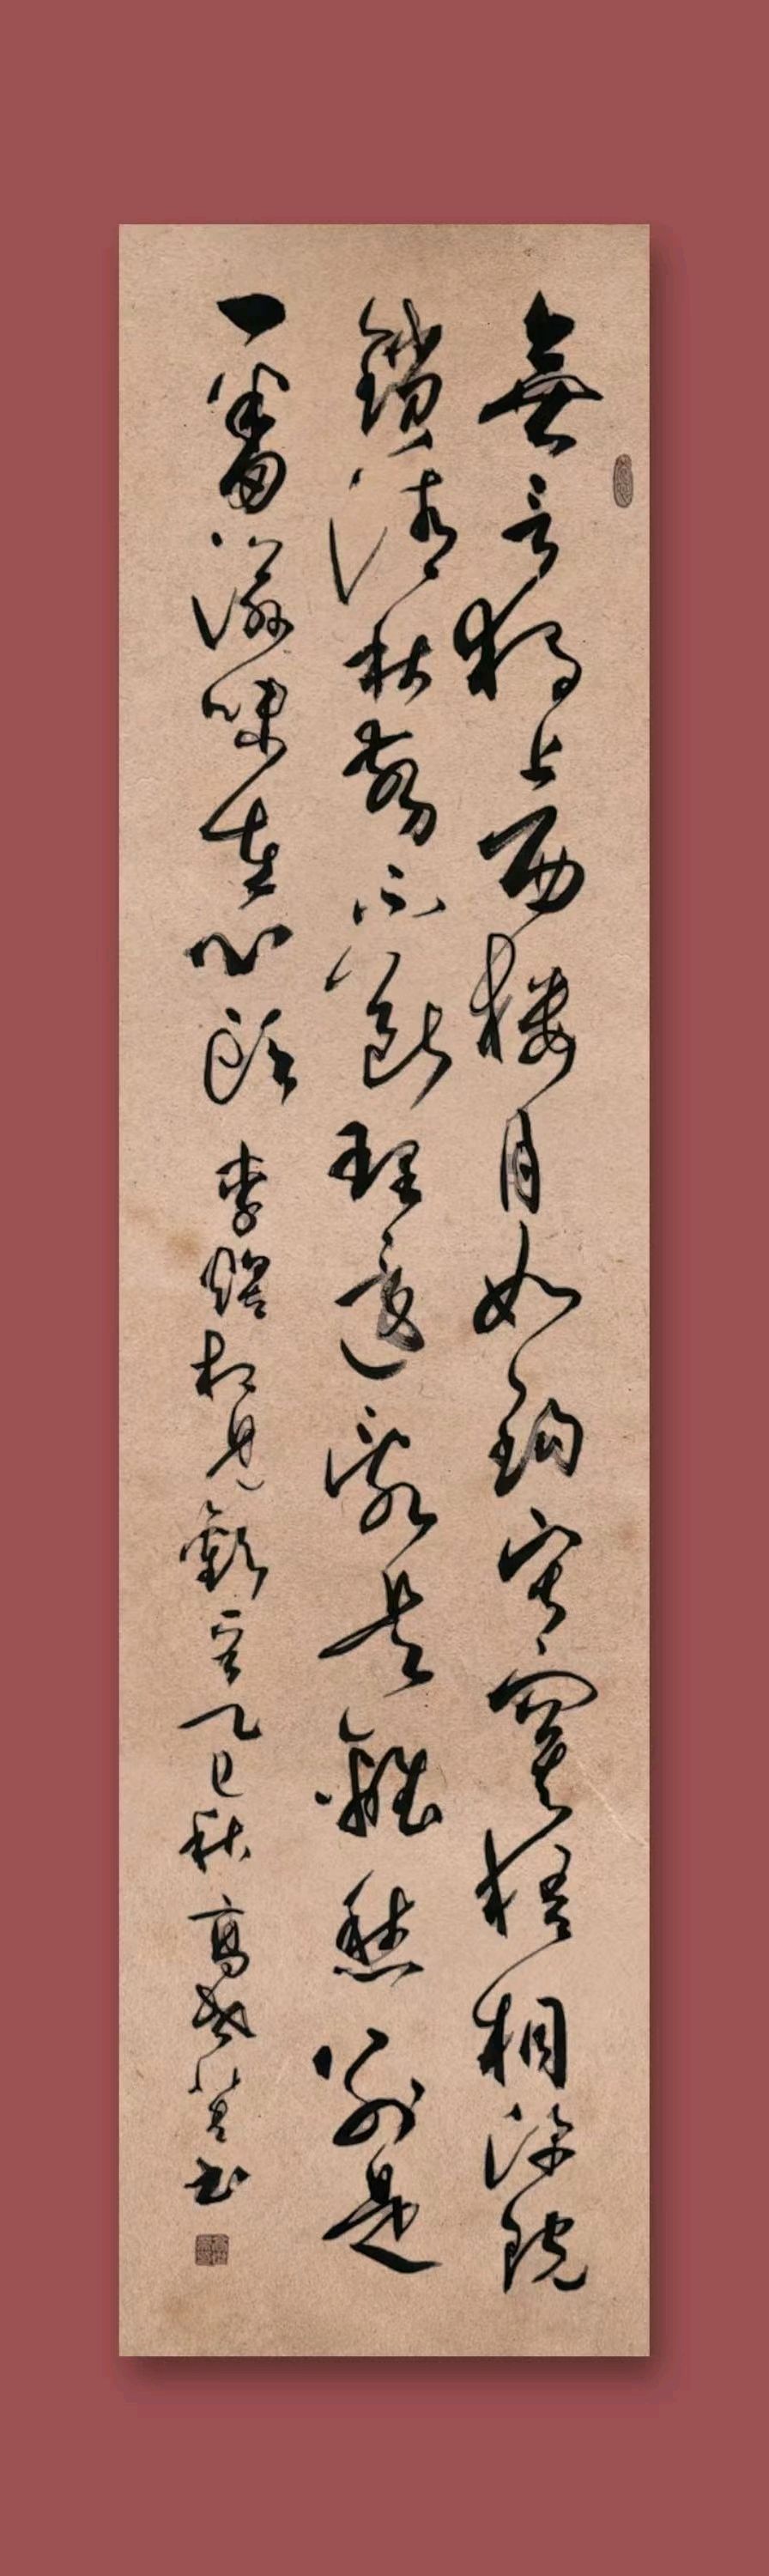 無言獨上西樓月如鉤寂寞梧桐深院
鎖清秋剪不斷理還亂是離愁別是
一番滋味在心頭 李煜相見歡 乙巳秋 高 書